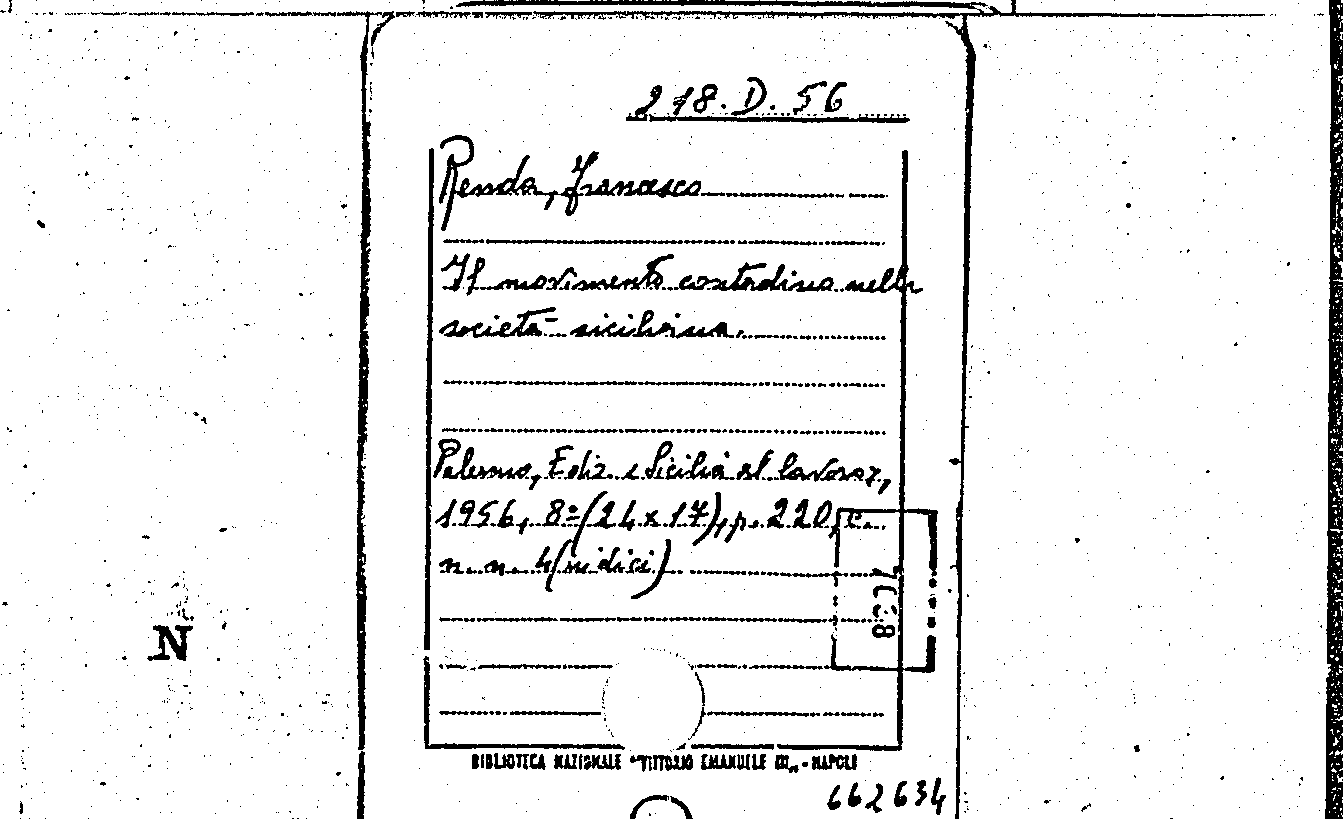 218. D. 56
Renda, Francesco
Il movimento contadino nella
società siciliana.
Palermo, Ediz. "Sicilia al lavoro",
1956, 8º (24 x 17), p. 220, c.
n. n. 4 (indici)
N
BIBLIOTECA NAZIONALE "VITTORIO EMANUELE III" - NAPOLI
662634